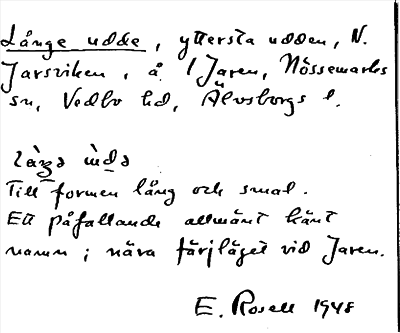 Långe udde, yttersta udden, N.
Jarsviken, å l Jaren, Nössemarks
sn, Vedbo hd, Älvsborgs l.
làŋə ùdə
Till formen lång och smal.
Ett påfallande allmänt känt
namn; nära färjläget vid Jaren.
E. Rosell 1948